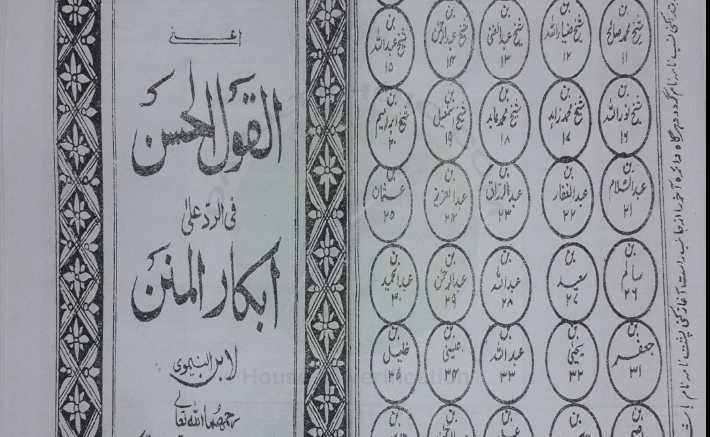 اعنی
القول الحسن
فی الرد علی
ابکار المنن
لابن النیموی
رحمهما الله تعالی
بن شیخ محمد صالح ۱۱
بن شیخ ضیاء الله ۱۲
بن شیخ عبد الغنی ۱۳
بن شیخ عبد الرحمن ۱۴
بن شیخ عبد الله ۱۵
بن شیخ نور الله ۱۶
بن شیخ محمد زاہد ۱۷
بن شیخ محمد عابد ۱۸
بن شیخ اسمعیل ۱۹
بن شیخ ابراہیم ۲۰
بن عبد السلام ۲۱
بن عبد الغفار ۲۲
بن عبد الرزاق ۲۳
بن عبد العزیز ۲۴
بن عثمان ۲۵
بن سالم ۲۶
بن سعید ۲۷
بن عبد الله ۲۸
بن عبد الرحمن ۲۹
بن عبد الحمید ۳۰
بن جعفر ۳۱
بن یحیی ۳۲
بن عبد الله ۳۳
بن عیسی ۳۴
بن خلیل ۳۵
بن
بن
بن
بن
بن